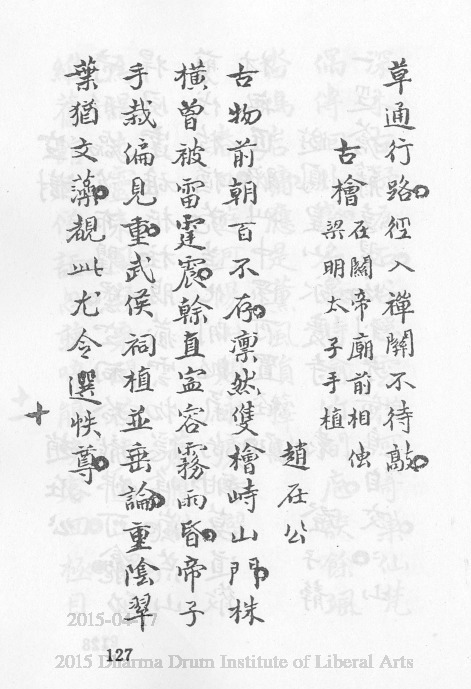 草通行路徑入禪關不待敲
古檜 在關帝廟前相傳
梁明太子手植
趙在公
古物前朝百不存凛然雙檜峙山門株
橫曾被雷霆震榦直寧容霧雨昏帝子
手栽偏見重武侯祠植並垂論重陰翠
葉猶文藻覩此尤令選帙尊
2015-04-17
127
2015 Dharma Drum Institute of Liberal Arts